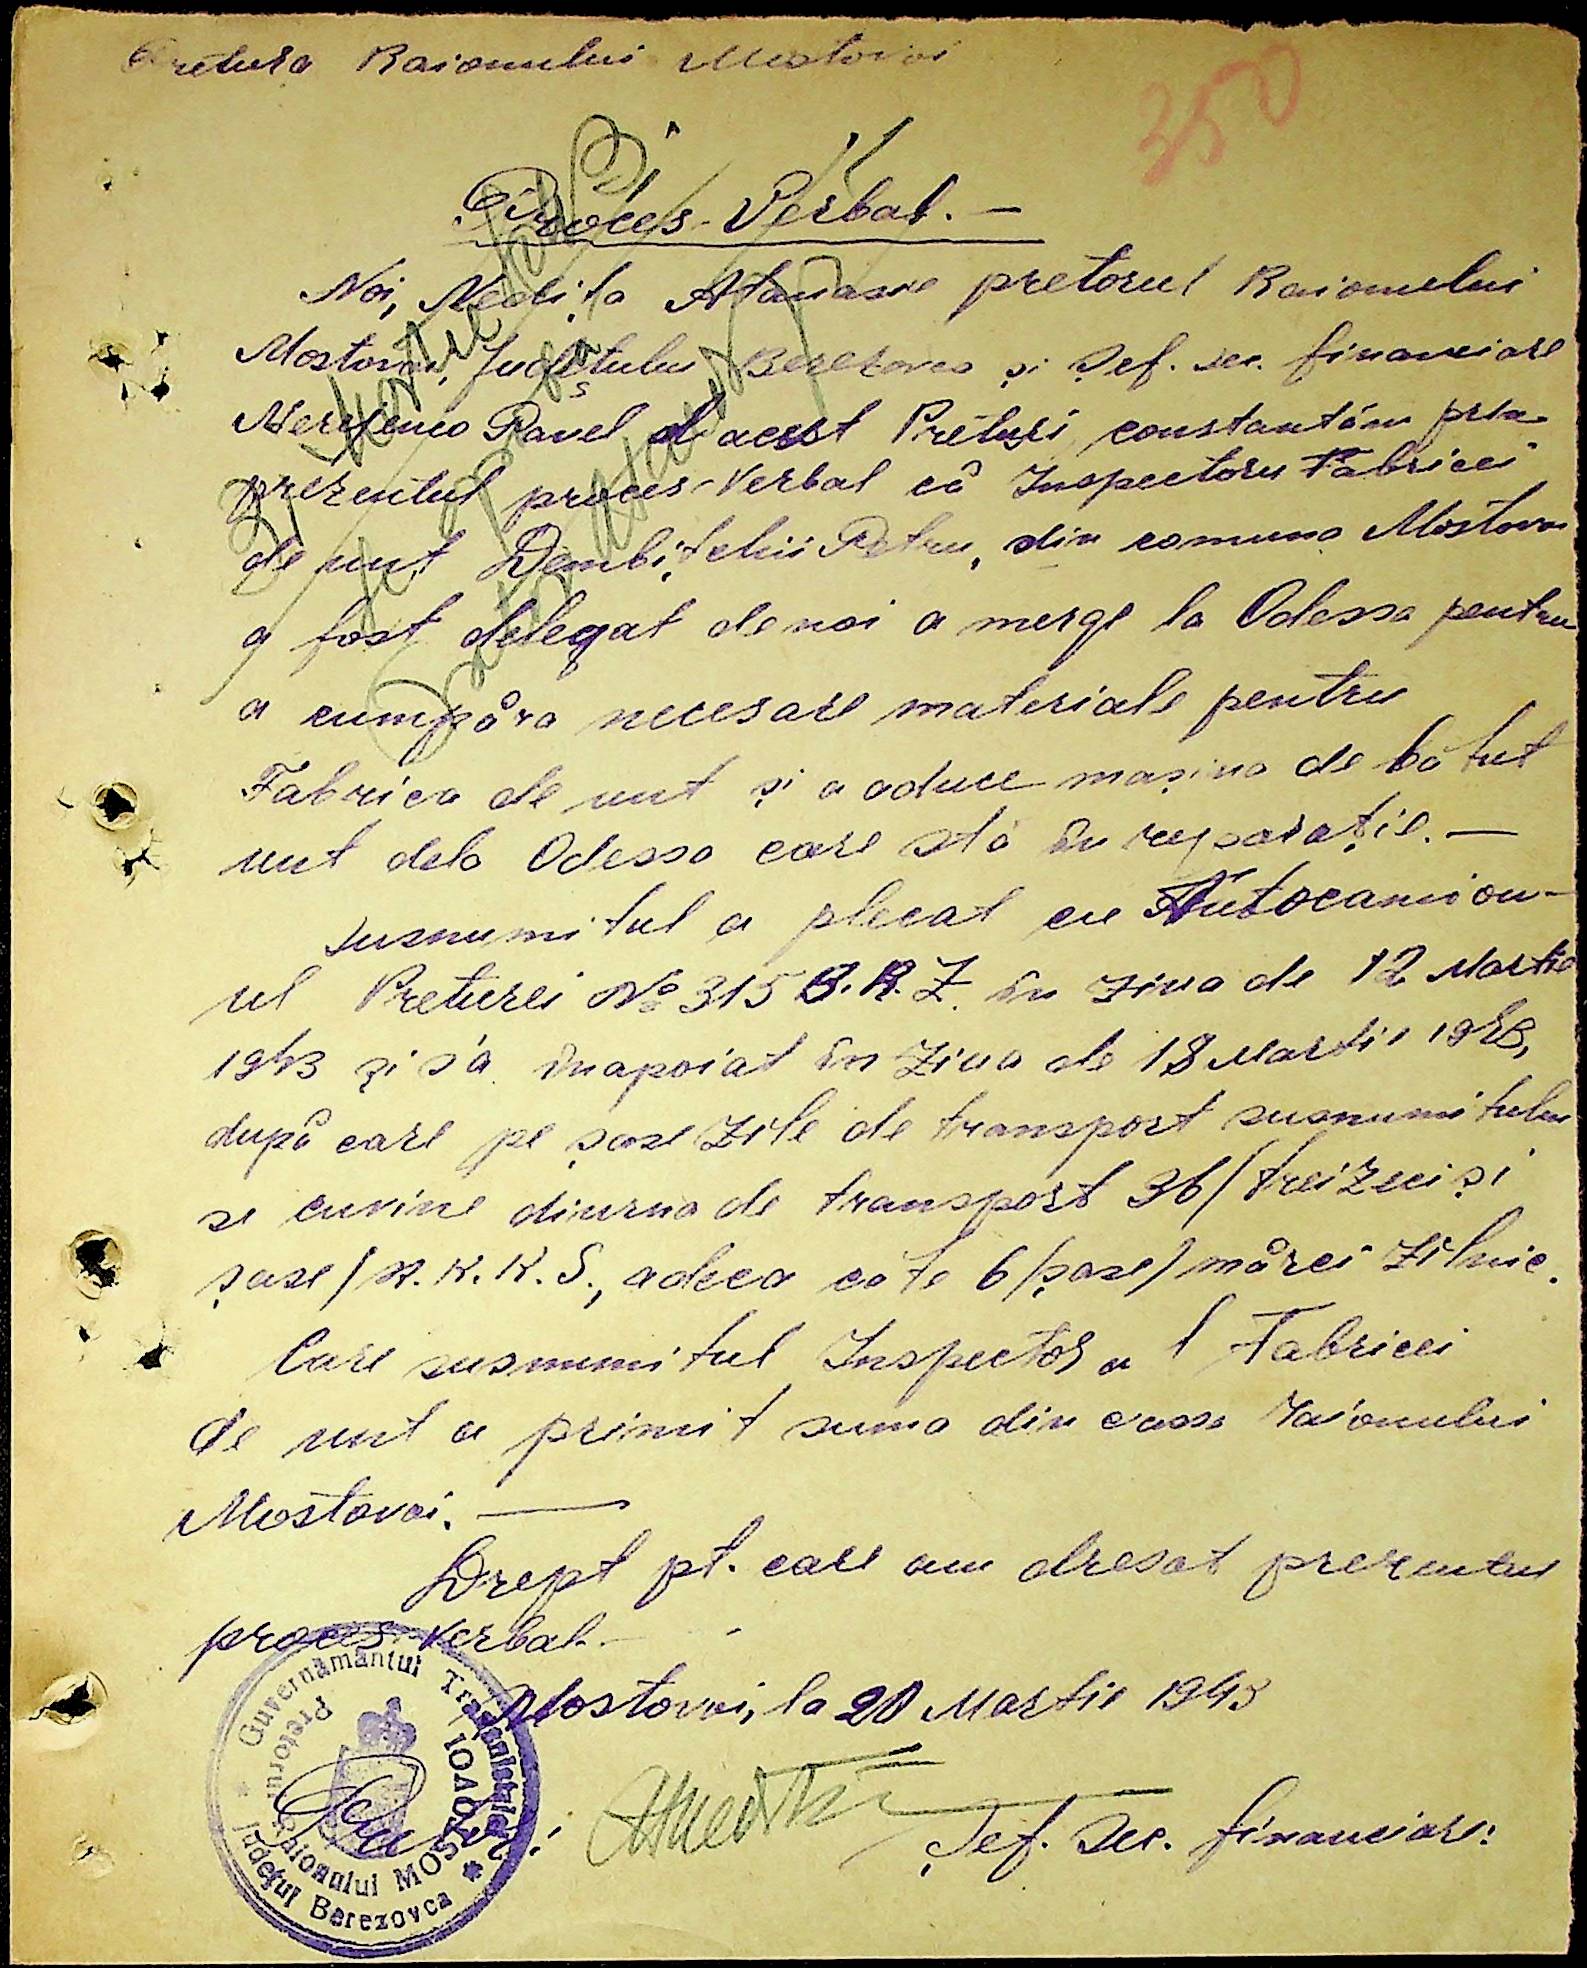 Pretura Raionului Mostovoi
350
Proces-Verbal. —
Noi, Nedița Atanasie pretorul Raionului
Mostovoi, Județului Berezovca și Șef. sec. financiare
Pavel al acest Preturi, constantăm prin
prezentul proces-verbal că Inspectoru Fabricei
de unt Dembițchii Petru, din comuna Mostovoi
a fost delegat de noi a merge la Odessa pentru
a cumpăra necesare materiale pentru
Fabrica de unt și a aduce mașina de bătut
unt dela Odessa care stă în reparație. —
Susnumitul a plecat cu Autocamion-
ul Preturei № 315 B.R.Z. în ziua de 12 Martie
1943 și s'a înapoiat în ziua de 18 Martie 1943,
după care pe șase zile de transport susnumitului
se cuvine diurna de transport 36/treizeci și
șase/R.K.K.S., adeca câte 6/șase/mărci zilnic.
Care susnumitul Inspector al Fabricei
de unt a primit suma din casa raionului
Mostovoi. —
Drept pt. care am dresat prezentul
proces-verbal. —
Mostovoi, la 20 Martie 1943
Guvernământul Transnistriei
Pretorul Raionului MOSTOVOI
Județul Berezovca
Șef. Sec. financiare: